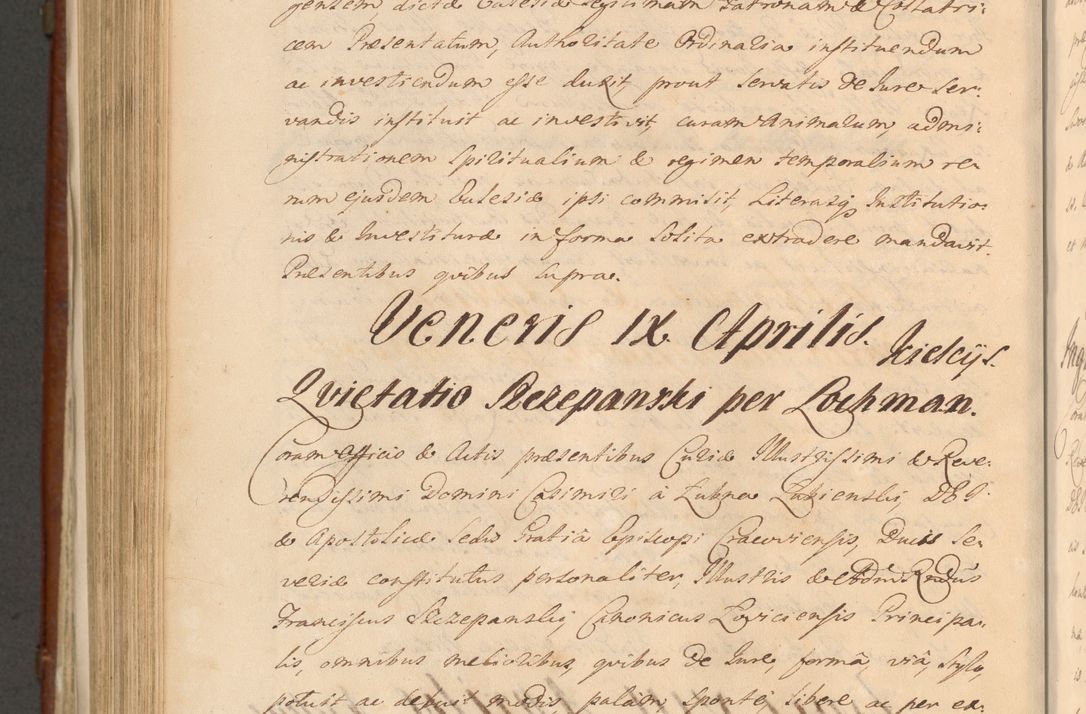 gentem dictæ Ecclesiæ legitimam Patronam & Collatri:
cem Præsentatum, Authoritate Ordinaria instituendum
ac investiendum esse duxit, prout servatis de Jure ser:
vandis instituit ac investivit, curam Animarum, admi:
nistrationem spiritualium & regimen temporalium re
rum ejusdem Ecclesiæ ipsi commisit, Literasq; Institutio:
nis & Investituræ in forma solita extradere mandavit.
Præsentibus quibus supra.
Veneris IX. Aprilis. Kielcijs.
Quietatio Szczepanski per Lochman.
Coram Officio & Actis præsentibus Curiæ Illustrissimi & Reve:
rendissimi Domini Casimiri à Lubna Lubienski, DEI
& Apostolicæ Sedis Gratiâ Episcopi Cracoviensis, Ducis Se:
veriæ constitutus personaliter, Illustris & Adm Rndus
Franciscus Szczepanski, Canonicus Loviciensis Principa:
lis, omnibus melioribus, quibus de Jure, formâ, viâ, stylo,
potuit ac debuit modis, palàm, sponte, libere ac per ex: